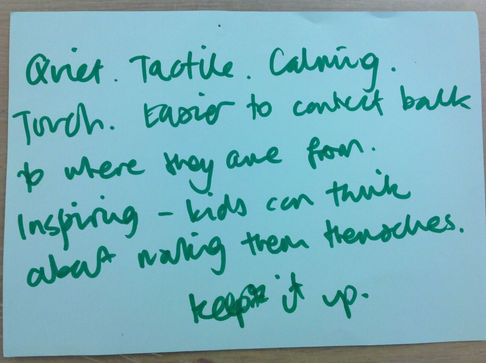 Quiet. Tactile. Calming.
Touch. Easier to contect back
to where they are from.
Inspiring - kids can think
about making them themselves.
keep it up.